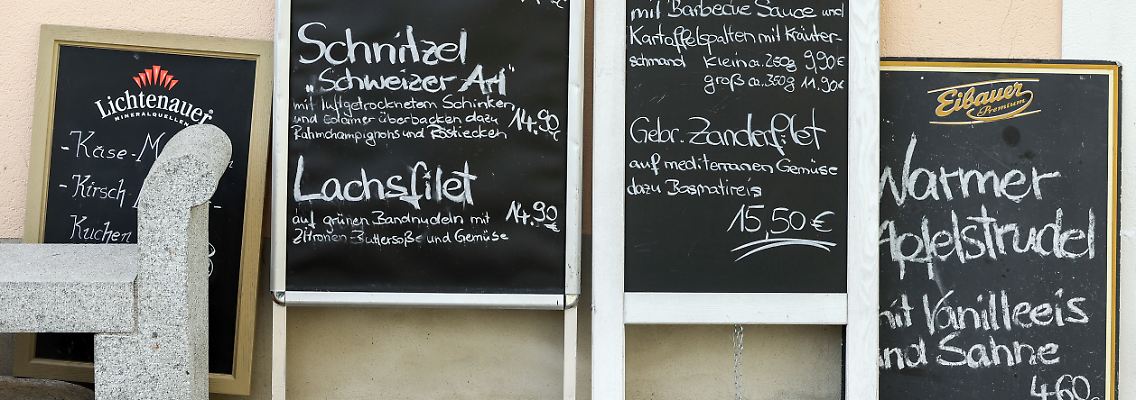 Lichtenauer
MINERALQUELLEN
-Käse-M
-Kirsch
Kuchen
Schnitzel
„Schweizer Art"
mit luftgetrocknetem Schinken
und Edamer überbacken dazu 14.90
Rahmchampignons und Röstiecken €
Lachsfilet
auf grünen Bandnudeln mit 14,90
Zitronen-Buttersoße und Gemüse €
mit Barbecue Sauce und
Kartoffelspalten mit Kräuter-
schmand Klein ca. 250g 9,90€
groß ca. 350g 11,90€
Gebr. Zanderfilet
auf mediterranen Gemüse
dazu Basmatireis
15,50 €
Eibauer
Premium
Warmer
Apfelstrudel
mit Vanilleeis
und Sahne
4,60